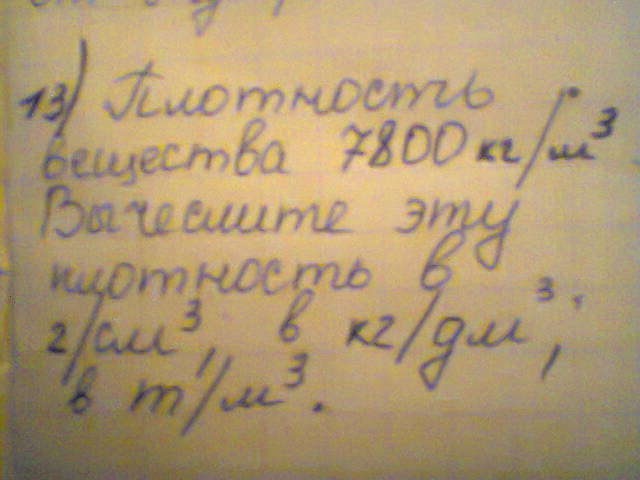 13) Плотность
вещества 7800 кг/м³.
Вычеслите эту
плотность в
г/см³, в кг/дм³,
в т/м³.